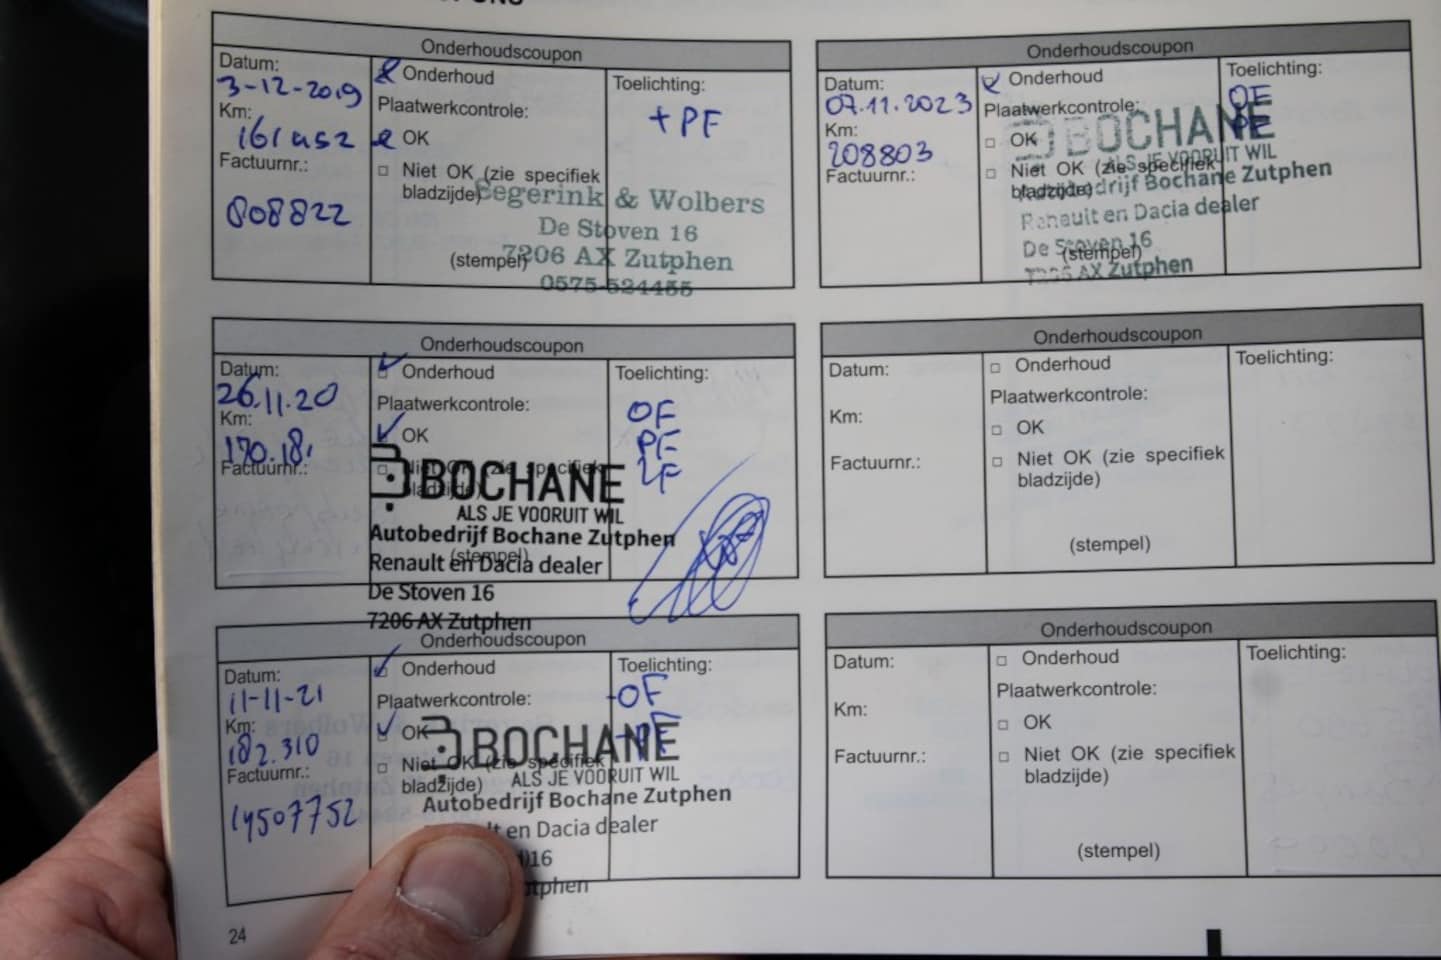 Onderhoudscoupon
Datum:
3-12-2019
Km:
161452
Factuurnr.:
808822
Onderhoud
Plaatwerkcontrole:
OK
Niet OK (zie specifiek
bladzijde)
(stempel)
Toelichting:
+ PF
Segerink & Wolbers
De Stoven 16
7206 AX Zutphen
0575-524455
Onderhoudscoupon
Datum:
26.11.20
Km:
170.181
Factuurnr.:
Onderhoud
Plaatwerkcontrole:
OK
Niet OK (zie specifiek
bladzijde)
(stempel)
Toelichting:
OF
PF
LF
BOCHANE
ALS JE VOORUIT WIL
Autobedrijf Bochane Zutphen
Renault en Dacia dealer
De Stoven 16
7206 AX Zutphen
Onderhoudscoupon
Datum:
11-11-21
Km:
182.310
Factuurnr.:
14507752
Onderhoud
Plaatwerkcontrole:
OK
Niet OK (zie specifiek
bladzijde)
Toelichting:
-OF
-PF
BOCHANE
ALS JE VOORUIT WIL
Autobedrijf Bochane Zutphen
en Dacia dealer
16
24
Onderhoudscoupon
Datum:
07.11.2023
Km:
208803
Factuurnr.:
Onderhoud
Plaatwerkcontrole:
OK
Niet OK (zie specifiek
bladzijde)
(stempel)
Toelichting:
OF
PF
BOCHANE
ALS JE VOORUIT WIL
Autobedrijf Bochane Zutphen
Renault en Dacia dealer
De Stoven 16
7206 AX Zutphen
Onderhoudscoupon
Datum:
Km:
Factuurnr.:
Onderhoud
Plaatwerkcontrole:
OK
Niet OK (zie specifiek
bladzijde)
(stempel)
Toelichting:
Onderhoudscoupon
Datum:
Km:
Factuurnr.:
Onderhoud
Plaatwerkcontrole:
OK
Niet OK (zie specifiek
bladzijde)
(stempel)
Toelichting: